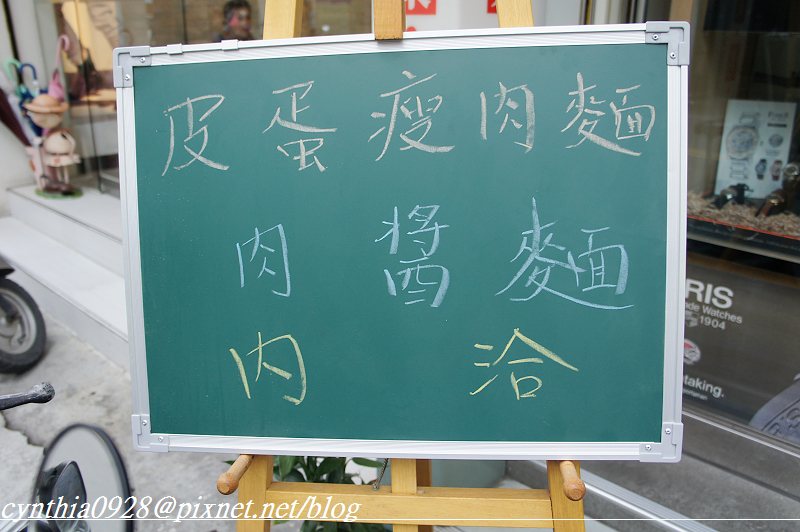 皮蛋瘦肉麵
肉醬麵
內洽
RIS
de Watches
1904
etaking.
cynthia0928@pixnet.net/blog